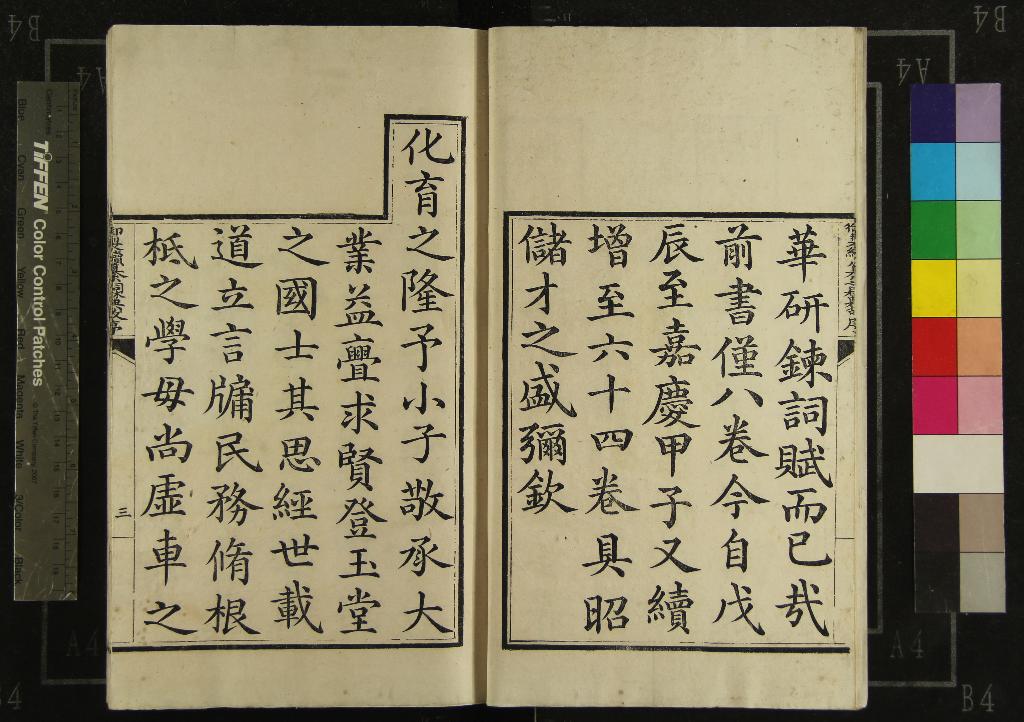 華研鍊詞賦而已哉
前書僅八卷今自戊
辰至嘉慶甲子又續
增至六十四卷具昭
儲才之盛彌欽
化育之隆予小子敬承大
業益亹求賢登玉堂
之國士其思經世載
道立言牖民務脩根
柢之學毋尚虛車之
三
TIFFEN Color Control Patches
Blue
Cyan
Green
Yellow
Red
Magenta
White
3/Color
Black
A4
B4
A4
B4
A4
B4
A4
B4